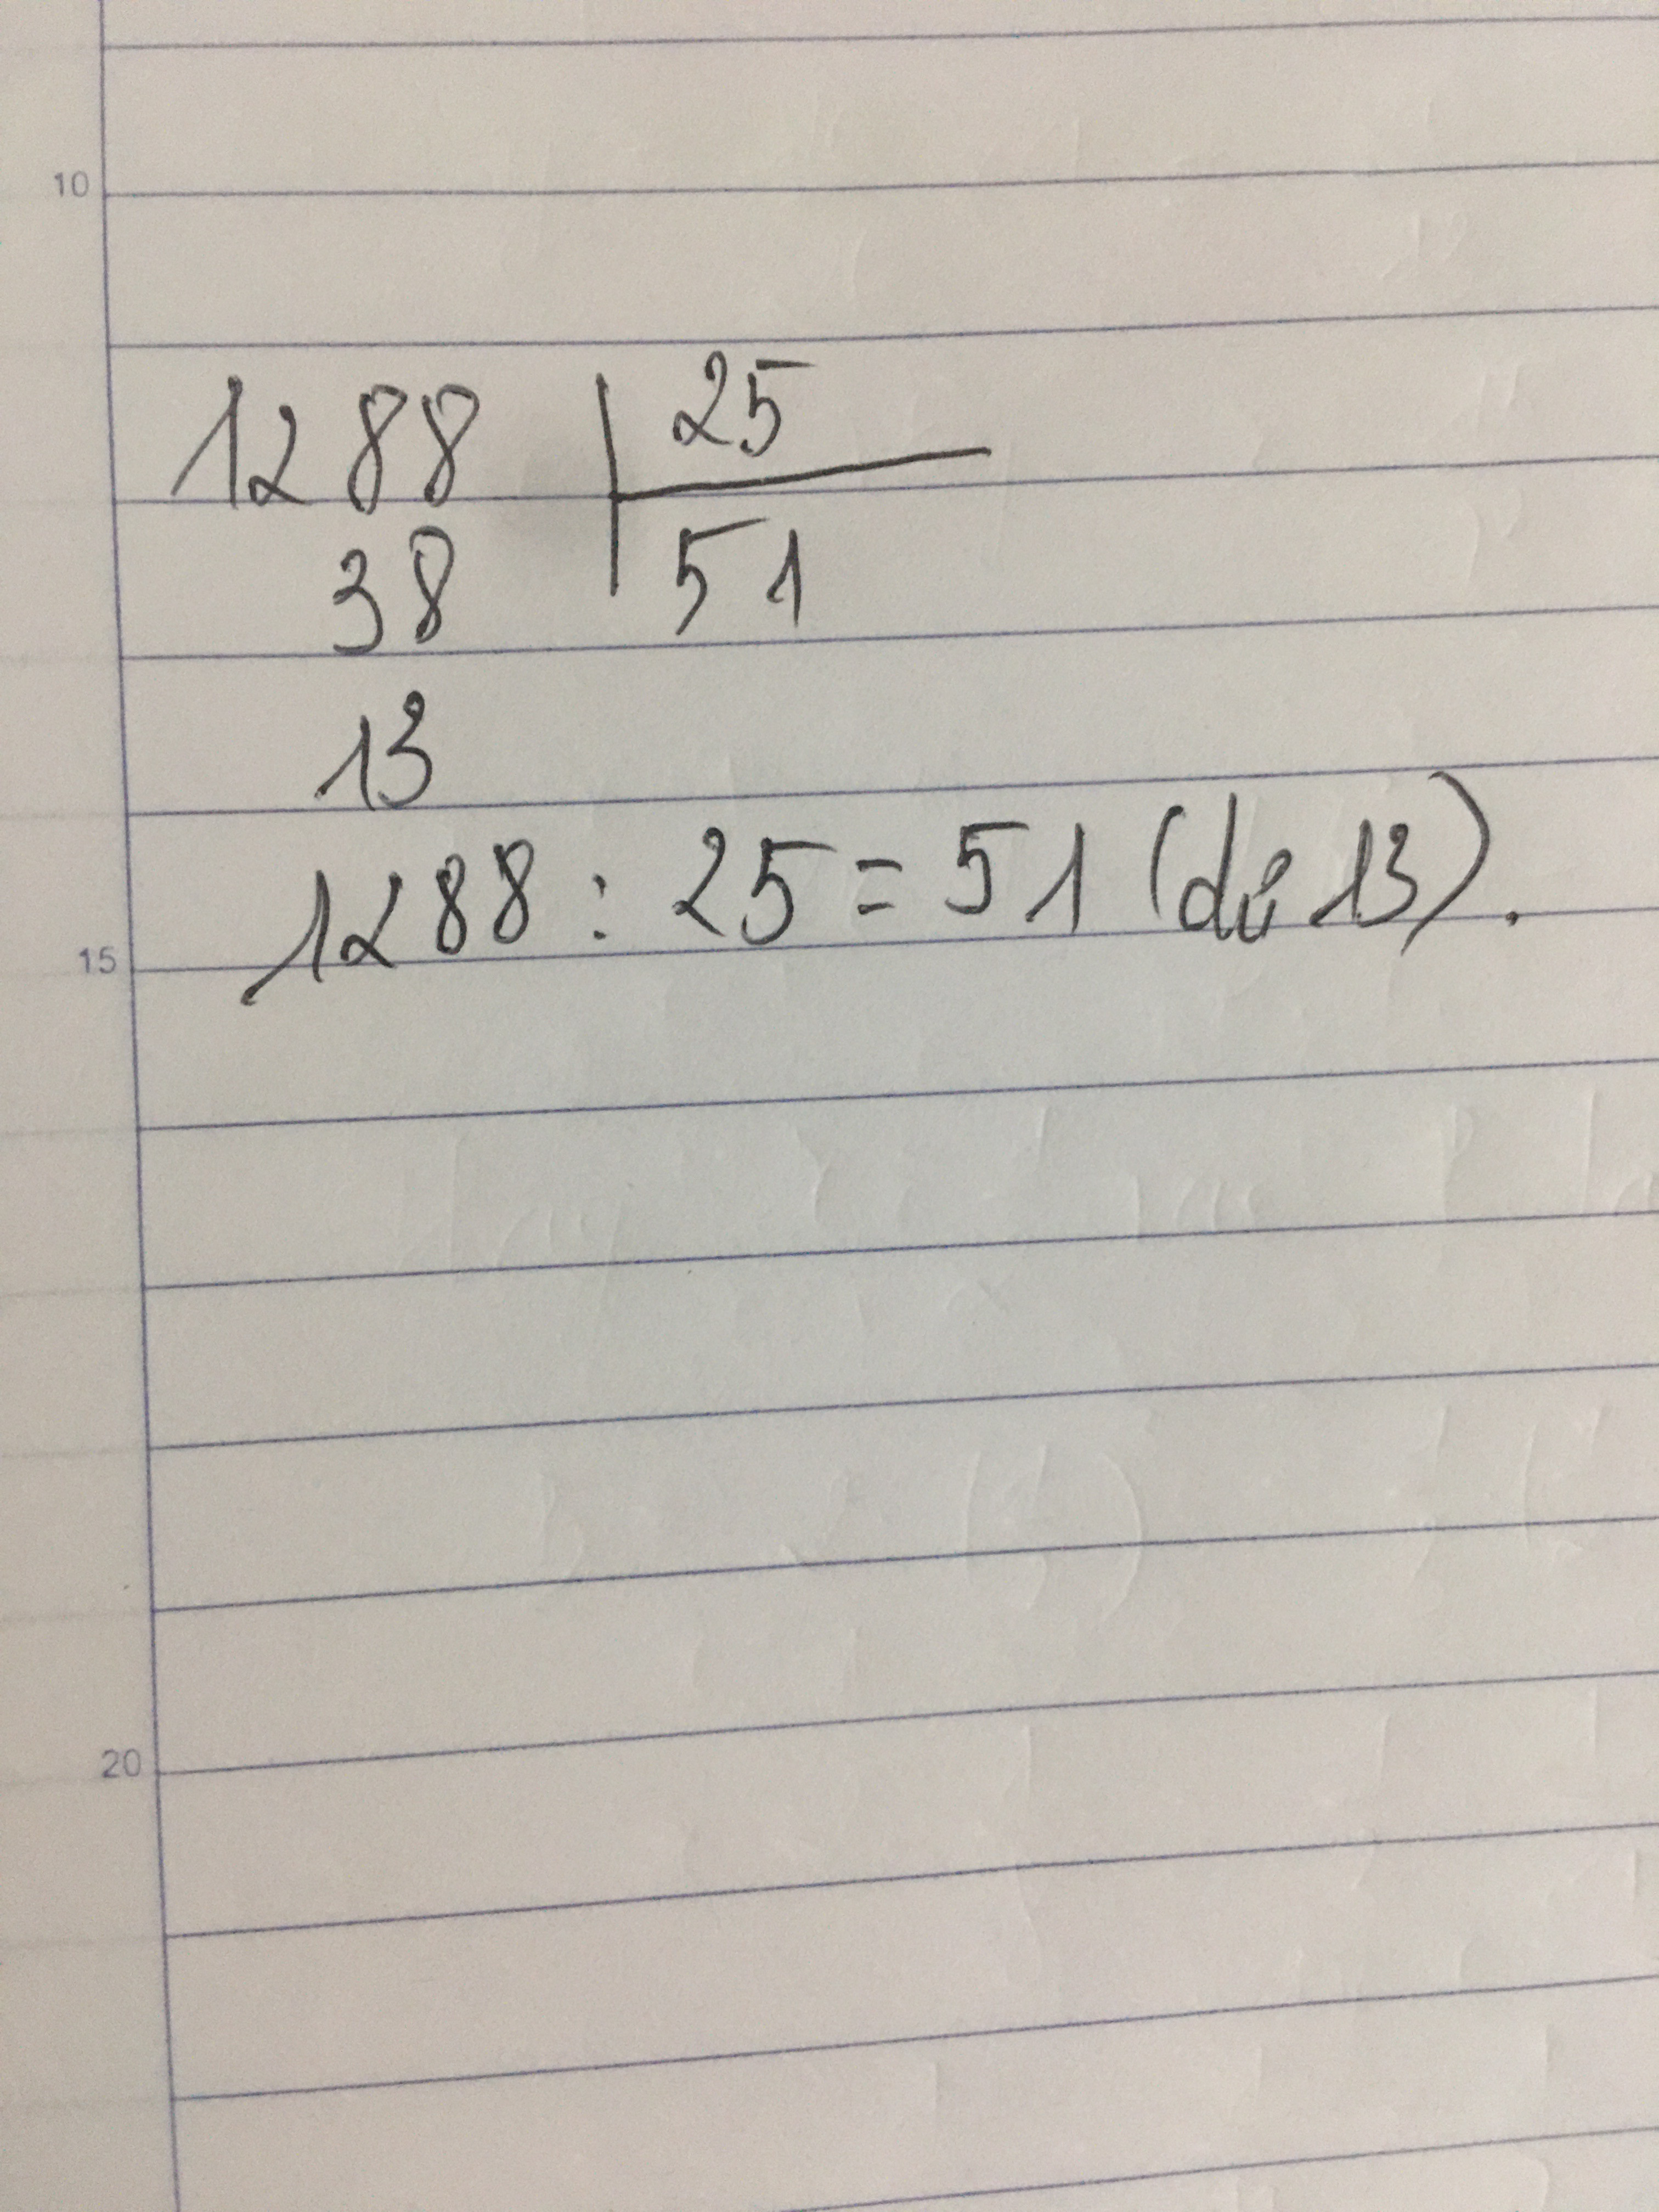 10
1288 | 25
38 51
13
1288 : 25 = 51 (dư 13).
15
20